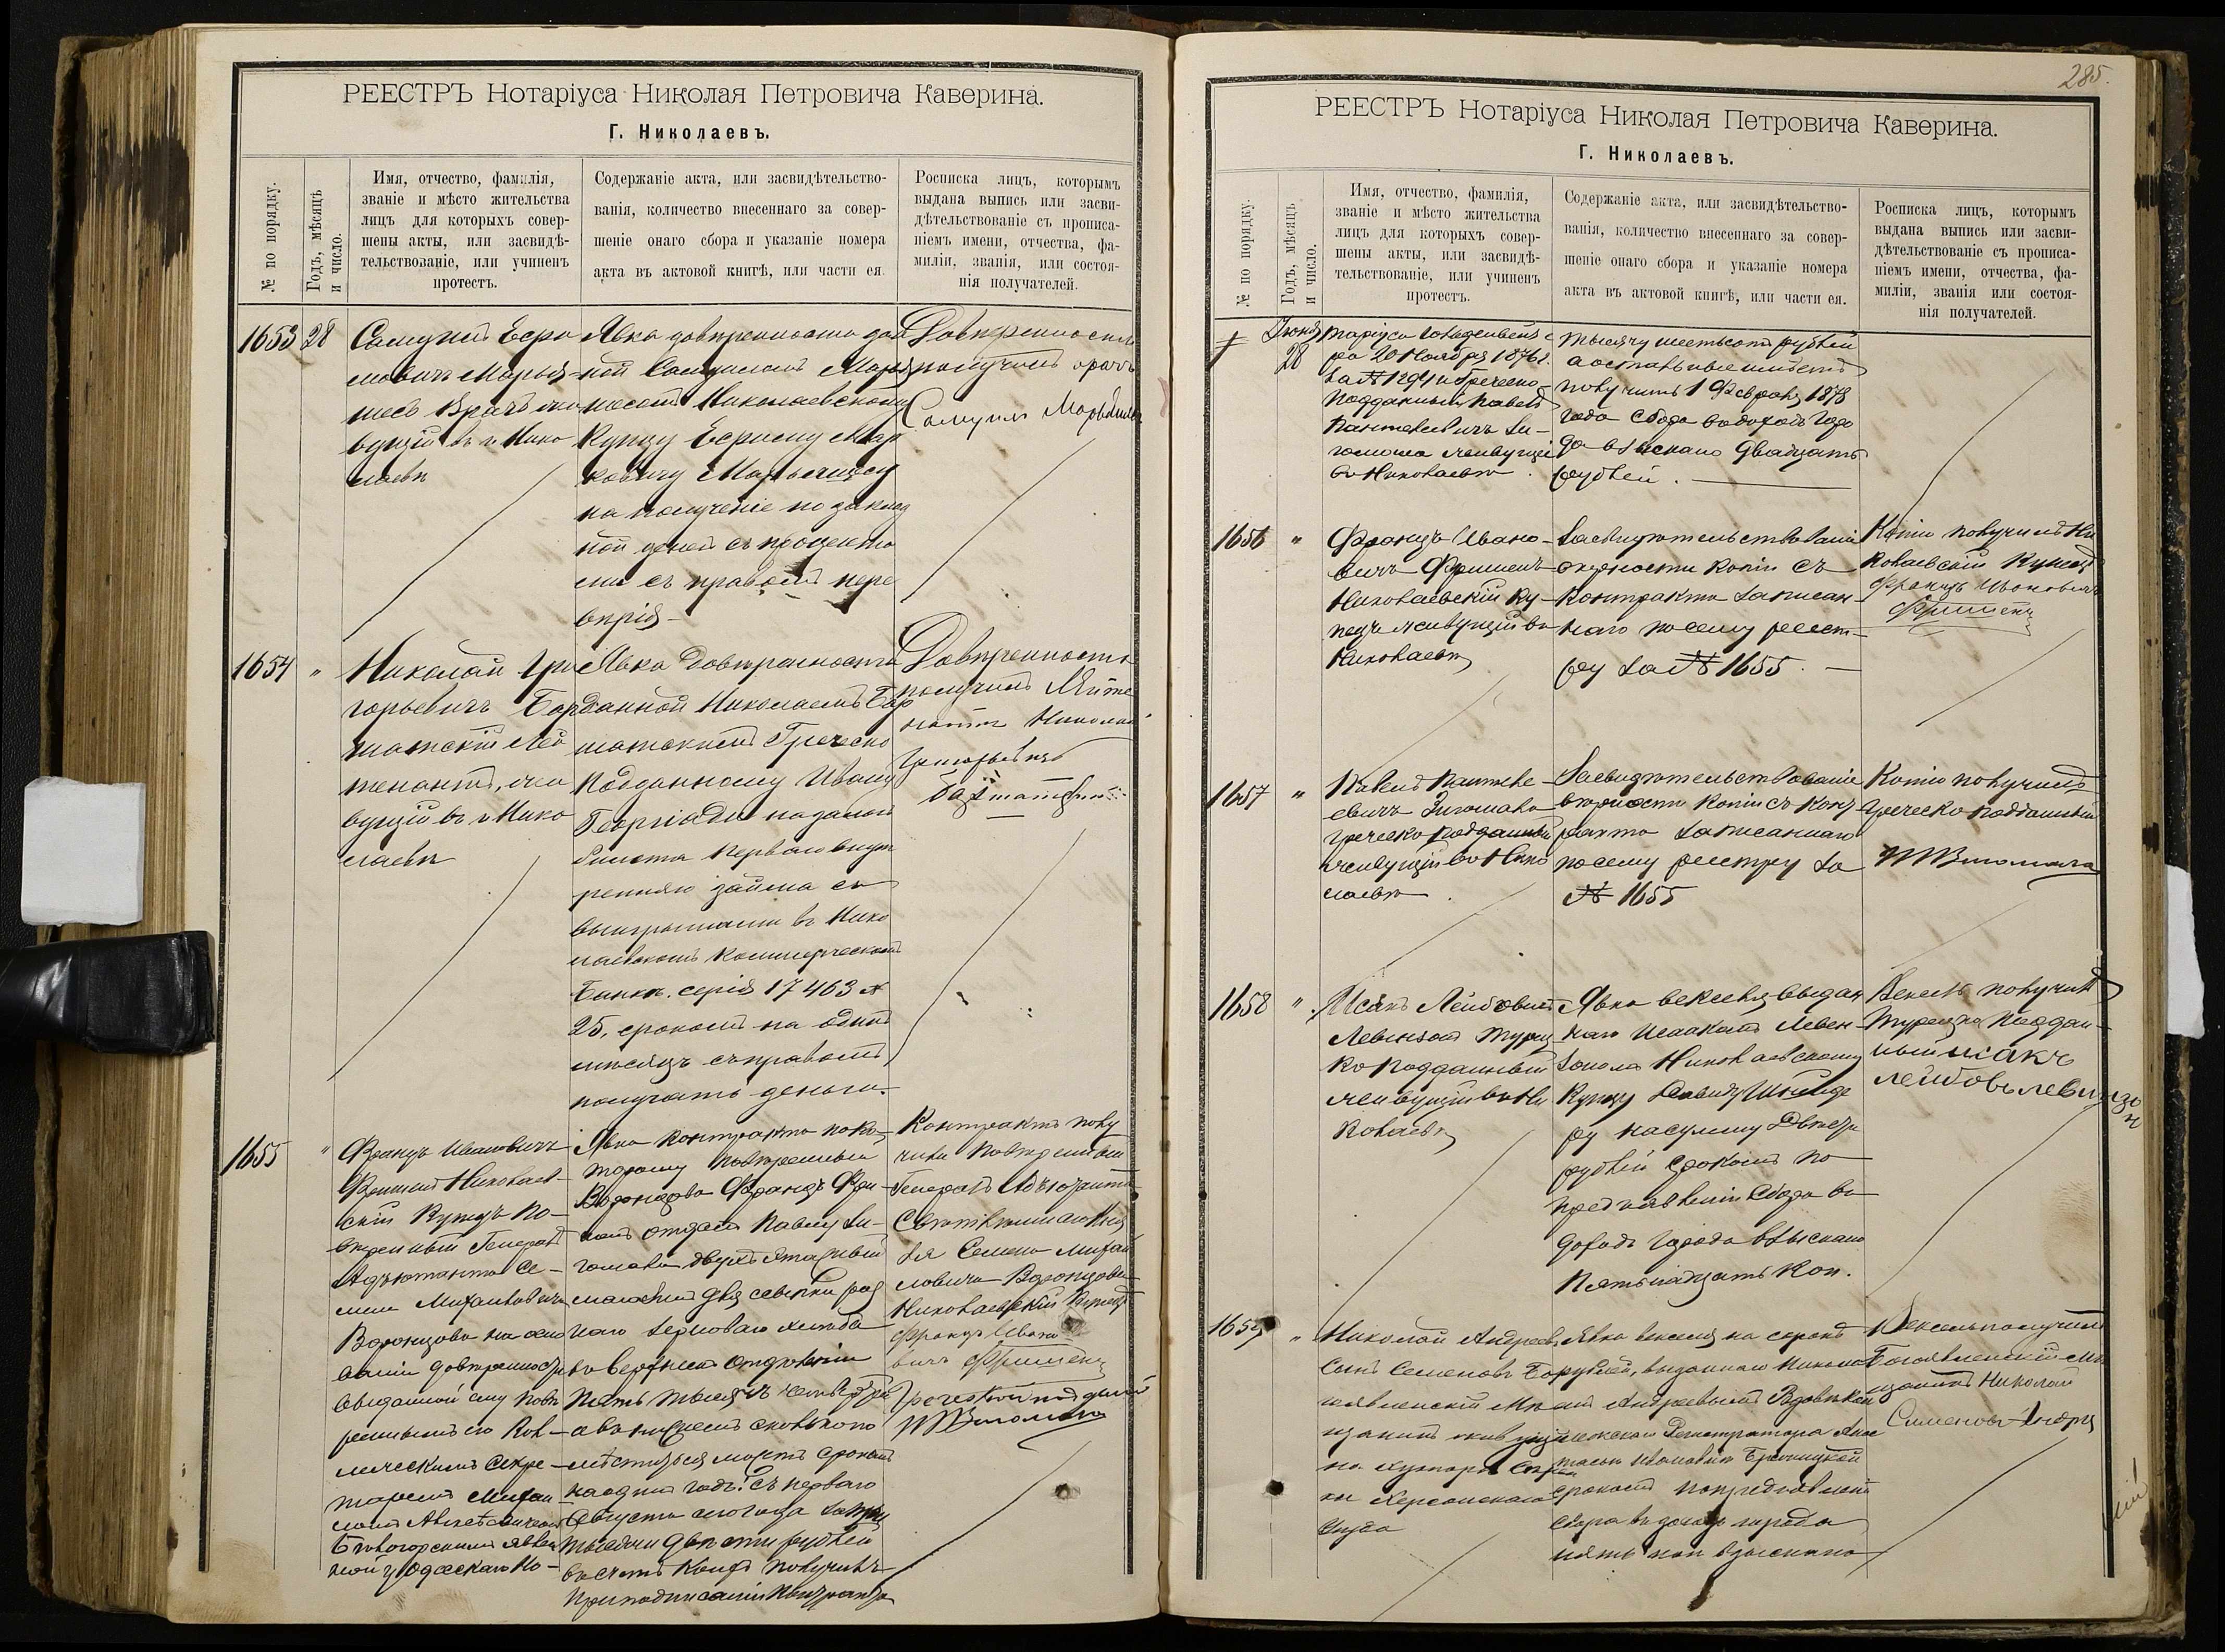 РЕЕСТРЪ Нотаріуса Николая Петровича Каверина.
Г. Николаевъ.
№ по порядку.
Годъ, мѣсяцъ
и число.
Имя, отчество, фамилія,
званіе и мѣсто жительства
лицъ для которыхъ совер-
шены акты, или засвидѣ-
тельствованіе, или учиненъ
протестъ.
Содержаніе акта, или засвидѣтельство-
ванія, количество внесеннаго за совер-
шеніе онаго сбора и указаніе номера
акта въ актовой книгѣ, или части ея.
Росписка лицъ, которымъ
выдана выпись или засви-
дѣтельствованіе съ прописа-
ніемъ имени, отчества, фа-
миліи, званія, или состоя-
нія получателей.
1653
28
вущій въ г. Нико
лаевѣ
Явка довѣренности дан
ной Самуиломъ
Николаевскому
Купцу
на полученіе по заклад
ной денегъ съ процента
ми съ правомъ пере
вѣрія
Довѣренность
получилъ врачъ
Самуилъ
1654
"
Николай Гри
горьевичъ
вущій въ г. Нико
лаевѣ
Явка довѣренности
данной Николаемъ
Греческо
подданному Ивану
Георгіади на залогъ
билета перваго внут
ренняго займа съ
выигрышами въ Нико
лаевскомъ Коммерческомъ
Банкѣ. серія 17463 №
25, срокомъ на одинъ
мѣсяцъ съ правомъ
получать деньги.
Довѣренность
получилъ Лейте
нантъ Николай
Григорьевичъ
1655
"
Францъ Ивановичъ
Фришенъ Николаев-
скій Купецъ по-
вѣренный Генералъ
Адъютанта Се-
мена Михайловича
Воронцова на осно
ваніи довѣренности
выданной ему повѣ
реннымъ его Кол-
лежскимъ Секре-
таремъ Михаи
ломъ
Явка контракта по ко-
торому повѣренный
Воронцова Францъ Фри-
шенъ отдалъ Павлу Зи-
гомала двухъ этажный
магазинъ для ссыпки раз
наго зерноваго хлѣба
въ верхнемъ отдѣленіи
пять тысячъ четвертей
а въ нижнемъ сколько по
мѣститься можетъ срокомъ
на одинъ годъ съ перваго
Августа сего года за три
тысячи двѣсти рублей
въ счетъ коихъ получилъ
при подписаніи контракта
Контрактъ полу
чили повѣренный
Генералъ Адъютанта
Свѣтлѣйшаго Кня
зя Семена Михай
ловича Воронцова
Николаевскій Купецъ
Францъ Ивано
вичъ Фришенъ
Греческій подданый
285.
РЕЕСТРЪ Нотаріуса Николая Петровича Каверина.
Г. Николаевъ.
№ по порядку.
Годъ, мѣсяцъ
и число.
Имя, отчество, фамилія,
званіе и мѣсто жительства
лицъ для которыхъ совер-
шены акты, или засвидѣ-
тельствованіе, или учиненъ
протестъ.
Содержаніе акта, или засвидѣтельство-
ванія, количество внесеннаго за совер-
шеніе онаго сбора и указаніе номера
акта въ актовой книгѣ, или части ея.
Росписка лицъ, которымъ
выдана выпись или засви-
дѣтельствованіе съ прописа-
ніемъ имени, отчества, фа-
миліи, званія или состоя-
нія получателей.
Іюня
28
таріуса
ра 20 Ноября 1876 г.
и Греческо-
подданный Павелъ
Пантелеевичъ Зи-
гомала живущій
въ Николаевѣ.
тысячу шестьсотъ рублей
а остальные имѣетъ
получить 1 Февраля 1878
года сбора въ доходъ горо
да взыскано двадцать
рублей.
1656
"
Францъ Ивано-
вичъ Фришенъ
Николаевскій ку-
пецъ живущій въ
Николаевѣ
Засвидѣтельствованіе
вѣрности копіи съ
контракта записан-
наго по сему реест-
ру за № 1655.
Копію получилъ Ни
колаевскій Купецъ
Францъ Ивановичъ
Фришенъ
1657
"
Павелъ Пантеле-
евичъ Зигомала
греческо подданный
живущій въ Нико
лаевѣ
Засвидѣтельствованіе
вѣрности копіи съ конт
ракта записаннаго
по сему реестру за
№ 1655
Копію получилъ
греческо подданный
1658
"
Исакъ Лейбовичъ
Левензонъ турец
ко подданный
живущій въ Ни
колаевѣ
Явка векселя выдан
наго Исаакомъ Левен-
зономъ Николаевскому
Купцу
ру на сумму двѣсти
рублей срокомъ по
предъявленіи сбора въ
доходъ города взыскано
пятнадцать коп.
Вексель получилъ
Турецко поддан-
ный исакъ
лейбовъ левинзо
н
1659
"
Николай Андреевъ
сынъ Семеновъ Бо
гоявленскій мѣ
щанинъ живущій
на хуторѣ
Херсонскаго
уѣзда
Явка векселя на сорокъ
рублей, выданнаго Никола
емъ Андреевымъ Вдовѣ Кол
лежскаго Регистратора
срокомъ по предъявленіи
сбора въ доходъ города
пять коп взыскано
Вексель получилъ
Богоявленскій мѣ
щанинъ Николай
Семеновъ Андре